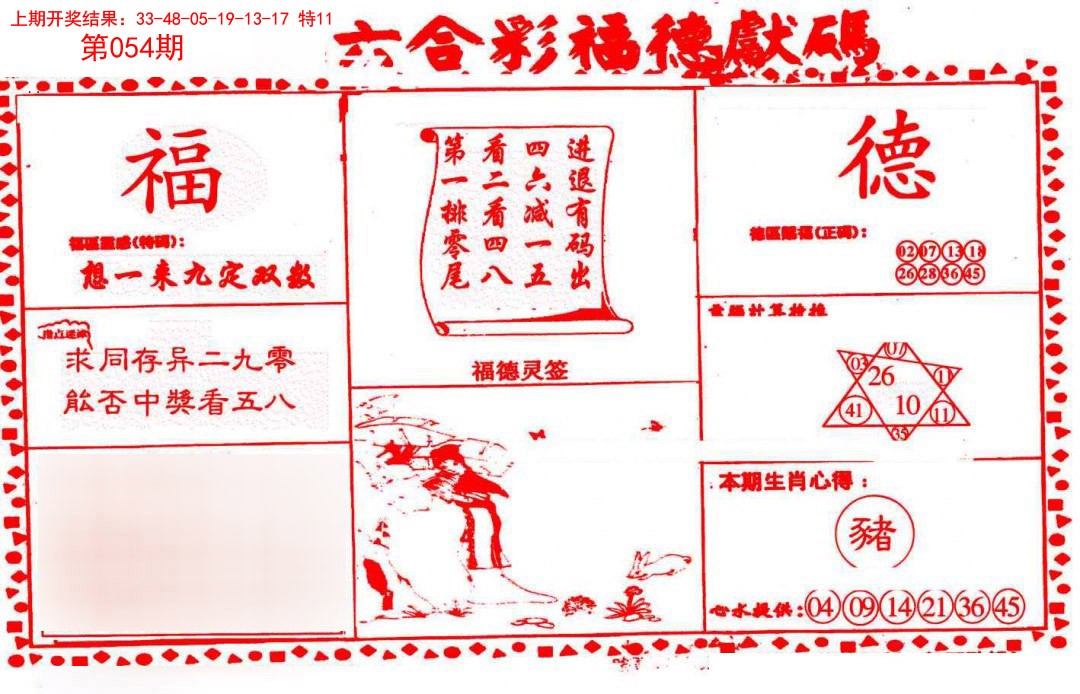 上期开奖结果：33-48-05-19-13-17 特11
第054期
六合彩福德獻碼
福
福區靈感(特码)：
想一来九定双数
求同存异二九零
能否中獎看五八
进退有码出
四六减一五
看二看四八
第一排零尾
福德灵签
德
德區賜福(正码)：
02 07 13 18
26 28 36 45
03 01 1
26
10
41 11
35
本期生肖心得：
豬
心水提供：04 09 14 21 36 45